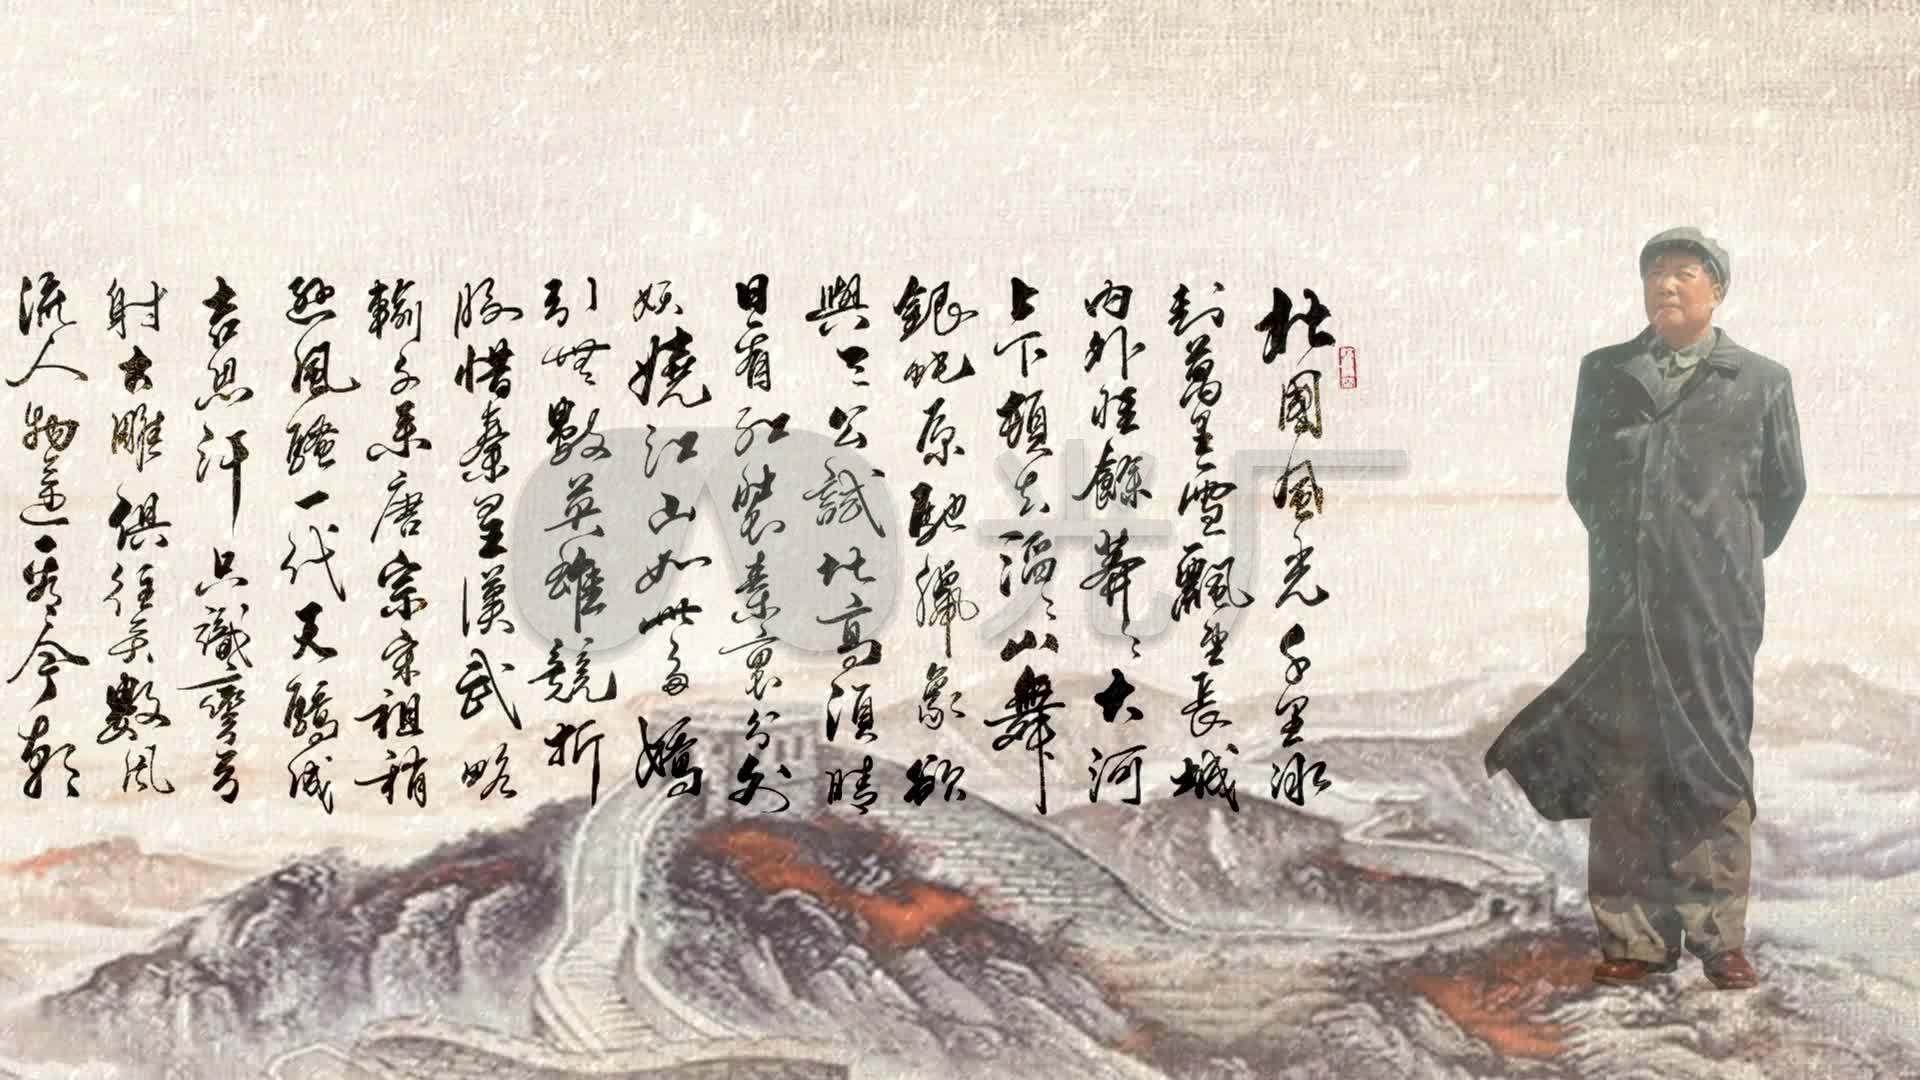 北國風光千里冰
封萬里雪飄望長城
内外惟餘莽〻大河
上下頓失滔〻山舞
銀蛇原馳臘象欲
與天公試比高須晴
日看紅裝素裹分外
妖嬈江山如此多嬌
引無數英雄競折
腰惜秦皇漢武略
輸文采唐宗宋祖稍
遜風騷一代天驕成
吉思汗只識彎弓
射大雕俱往矣數風
流人物還看今朝
光厂